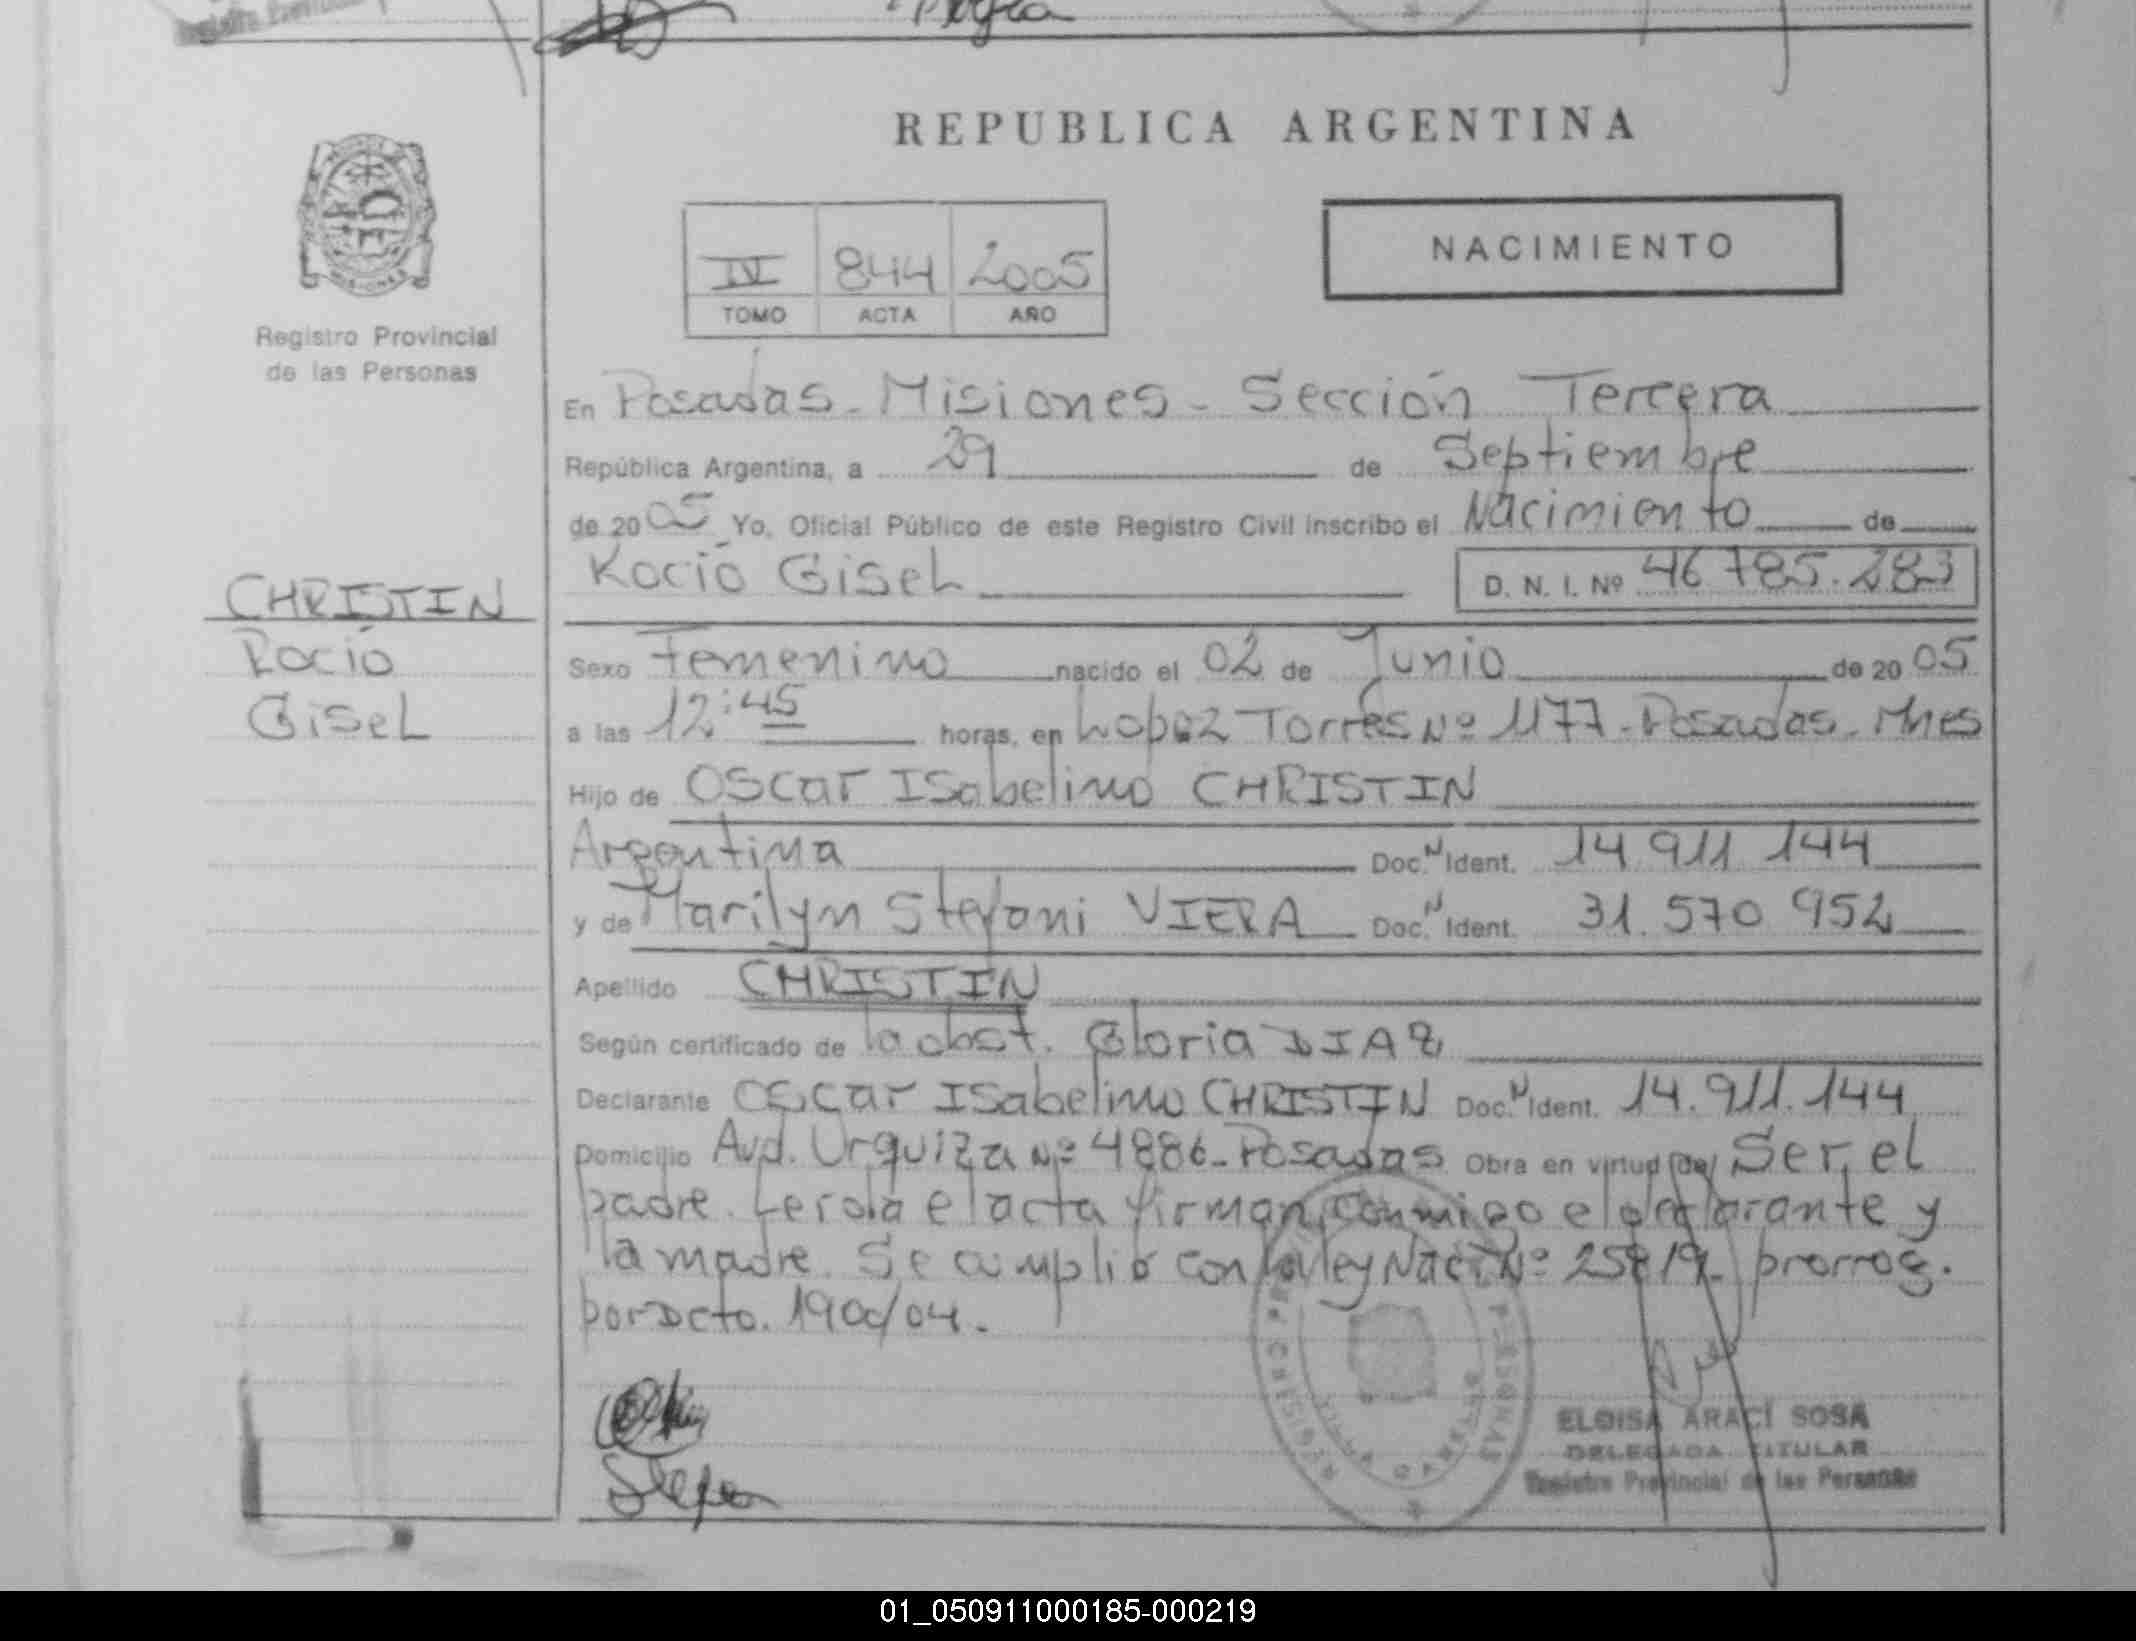 REPUBLICA ARGENTINA
MISIONES
Registro Provincial
de las Personas
NACIMIENTO
IV 844 2005
TOMO ACTA AÑO
En Posadas - Misiones - Sección Tercera
República Argentina, a 29 de Septiembre
de 2005 Yo, Oficial Público de este Registro Civil inscribo el Nacimiento de
Rocío Gisel D. N. I. Nº 46.785.283
CHRISTIN
Rocío
Gisel
Sexo Femenino nacido el 02 de Junio de 2005
a las 12:45 horas, en Lopez Torres Nº 1177 - Posadas - Mnes
Hijo de Oscar Isabelino CHRISTIN
Argentina Doc. N Ident. 14.911.144
y de Marilyn Stefani VIERA Doc. N Ident. 31.570.952
Apellido CHRISTIN
Según certificado de la obst. Gloria DIAZ
Declarante Oscar Isabelino CHRISTIN Doc. N Ident. 14.911.144
Domicilio Avd. Urquiza Nº 4886 - Posadas Obra en virtud de Ser el
padre. Leida el acta firman conmigo el declarante y
la madre. Se cumplió con la ley Nac. Nº 25819 prorrog.
por Dcto. 1900/04.
ELOISA ARACÍ SOSA
DELEGADA TITULAR
Registro Provincial de las Personas
01_050911000185-000219